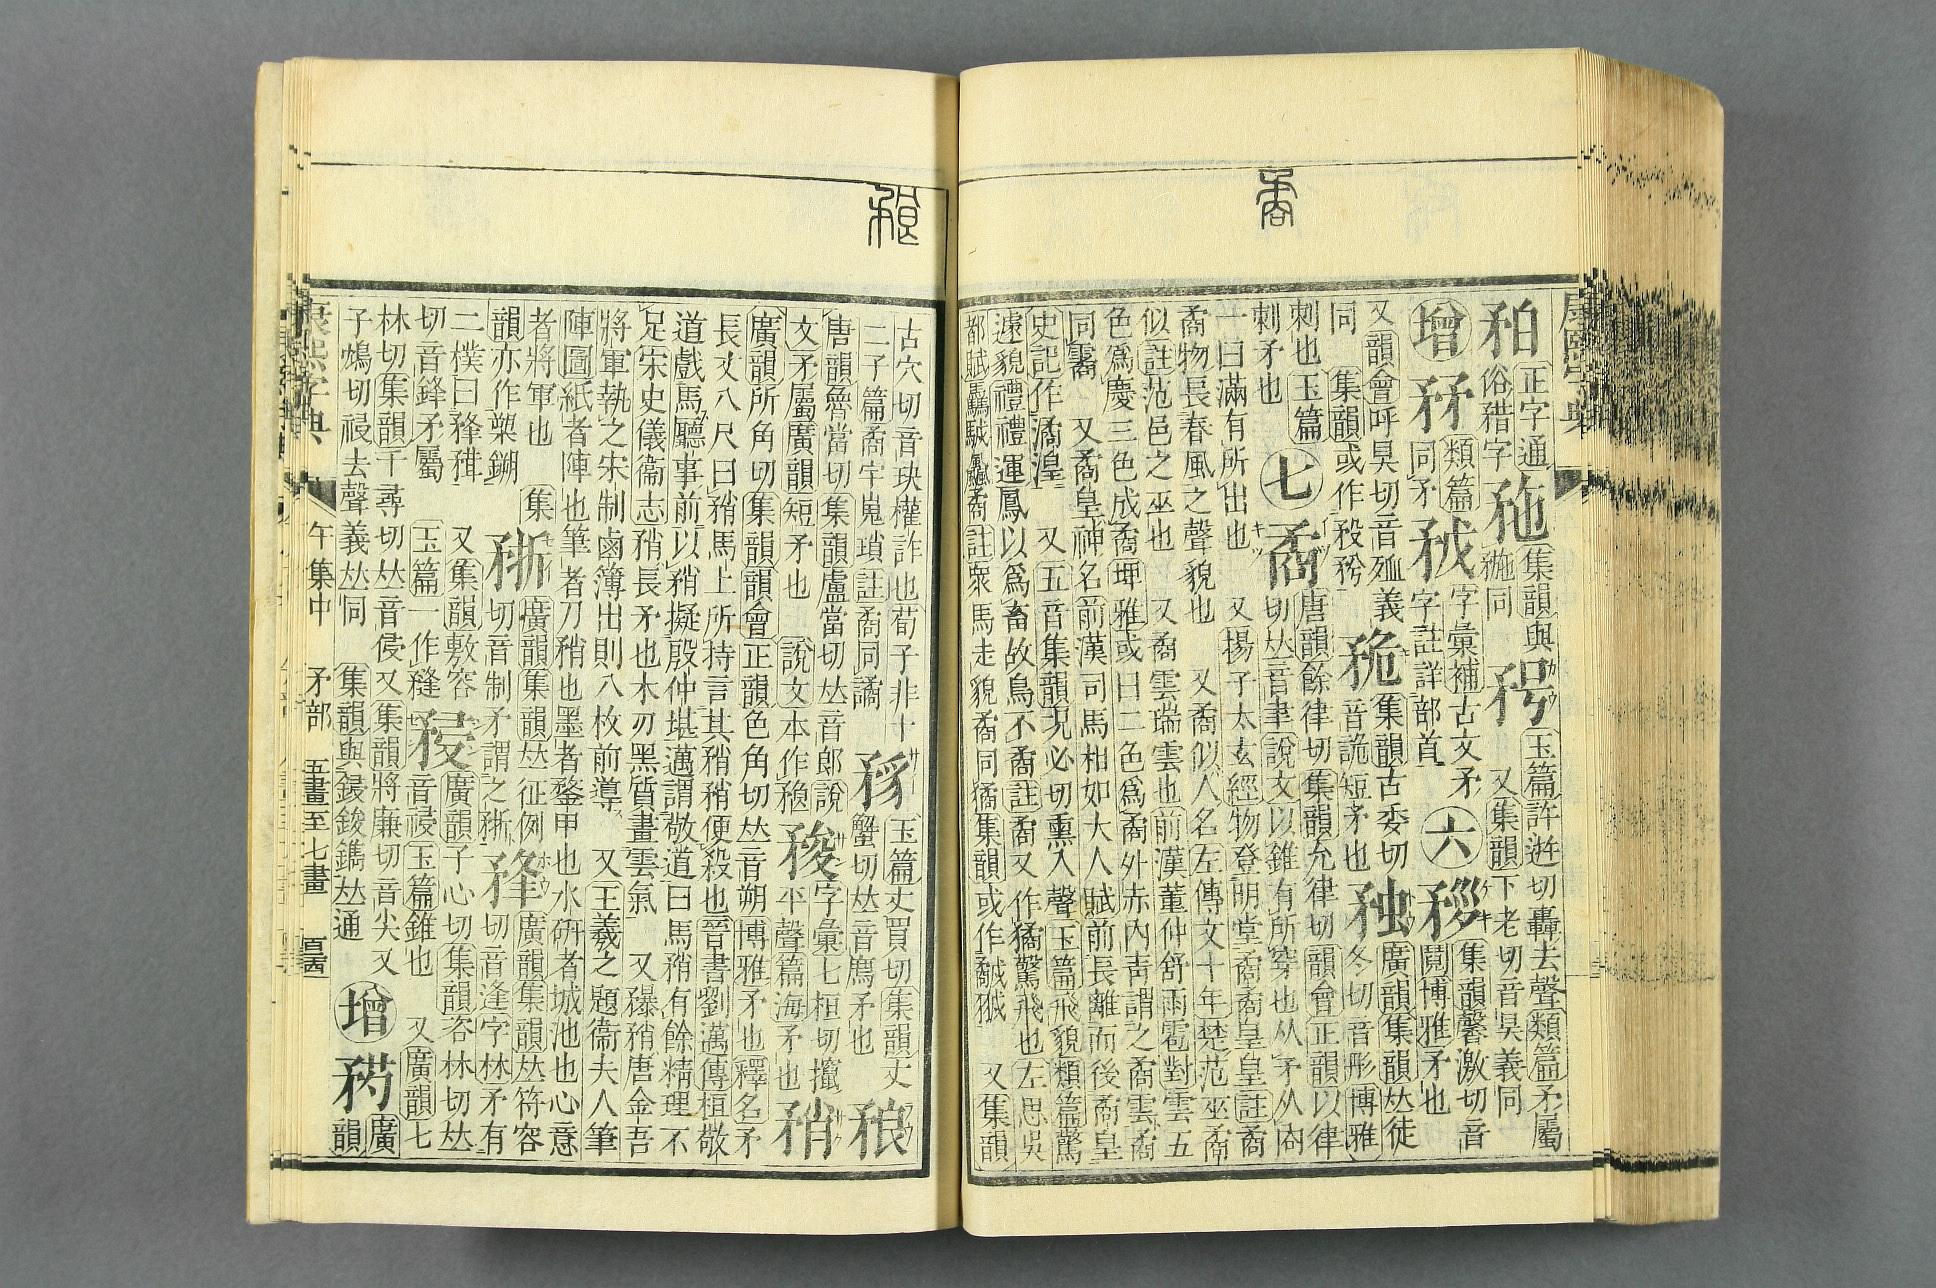 正字通
俗矠字
集韻與
䂠同
玉篇許迸切轟去聲類篇矛屬
又集韻下老切音昊義同
增
類篇
同矛
字彙補古文矛
字註詳部首
六
集韻馨激切音
鬩博雅矛也
又韻會呼昊切音殈義
同 集韻或作
集韻古委切
音詭短矛也
廣韻集韻𠀤徒
冬切音彤博雅
刺也玉篇
刺矛也
七 矞
唐韻餘律切集韻允律切韻會正韻以律
切𠀤音聿說文以錐有所穿也从矛从㕯
一曰滿有所出也 又揚子太玄經物登明堂矞矞皇皇註矞
矞物長春風之聲貌也 又矞似人名左傳文十年楚范巫矞
似註范邑之巫也 又矞雲瑞雲也前漢董仲舒雨雹對雲五
色爲慶三色成矞埤雅或曰二色爲矞外赤內靑謂之矞雲
同霱 又矞皇神名前漢司馬相如大人賦前長離而後矞皇
史記作潏湟 又五音集韻況必切熏入聲玉篇飛貌類篇驚
遽貌禮禮運鳳以爲畜故鳥不矞註矞又作獝驚飛也左思吳
都賦驫駥飍矞註衆馬走貌矞同獝集韻或作狘 又集韻
古穴切音玦權詐也荀子非十
二子篇矞宇嵬瑣註矞同譎
玉篇丈買切集韻丈
蟹切𠀤音廌矛也
唐韻魯當切集韻盧當切𠀤音郎說
文矛屬廣韻短矛也 說文本作
字彙七桓切攛
平聲篇海矛也
矟
廣韻所角切集韻韻會正韻色角切𠀤音朔博雅矛也釋名矛
長丈八尺曰矟馬上所持言其矟矟便殺也晉書劉邁傳桓敬
道戲馬廳事前以矟擬殷仲堪邁謂敬道曰馬矟有餘精理不
足宋史儀衞志矟長矛也木刃黑質畫雲氣 又矟唐金吾
將軍執之宋制鹵簿出則八枚前導 又王羲之題衞夫人筆
陣圖紙者陣也筆者刀矟也墨者鍪甲也水硏者城池也心意
者將軍也 集
韻亦作槊鎙
廣韻集韻𠀤征例
切音制矛謂之
廣韻集韻𠀤符容
切音逢字林矛有
二橫曰 又集韻敷容
切音鋒矛屬 玉篇一作
廣韻子心切集韻咨林切𠀤
音祲玉篇錐也 又廣韻七
林切集韻千尋切𠀤音侵又集韻將廉切音尖又
子鴆切祲去聲義𠀤同 集韻與鋟鋑鐫𠀤通
增
廣
韻
康熙字典
午集中 矛部 五畫至七畫